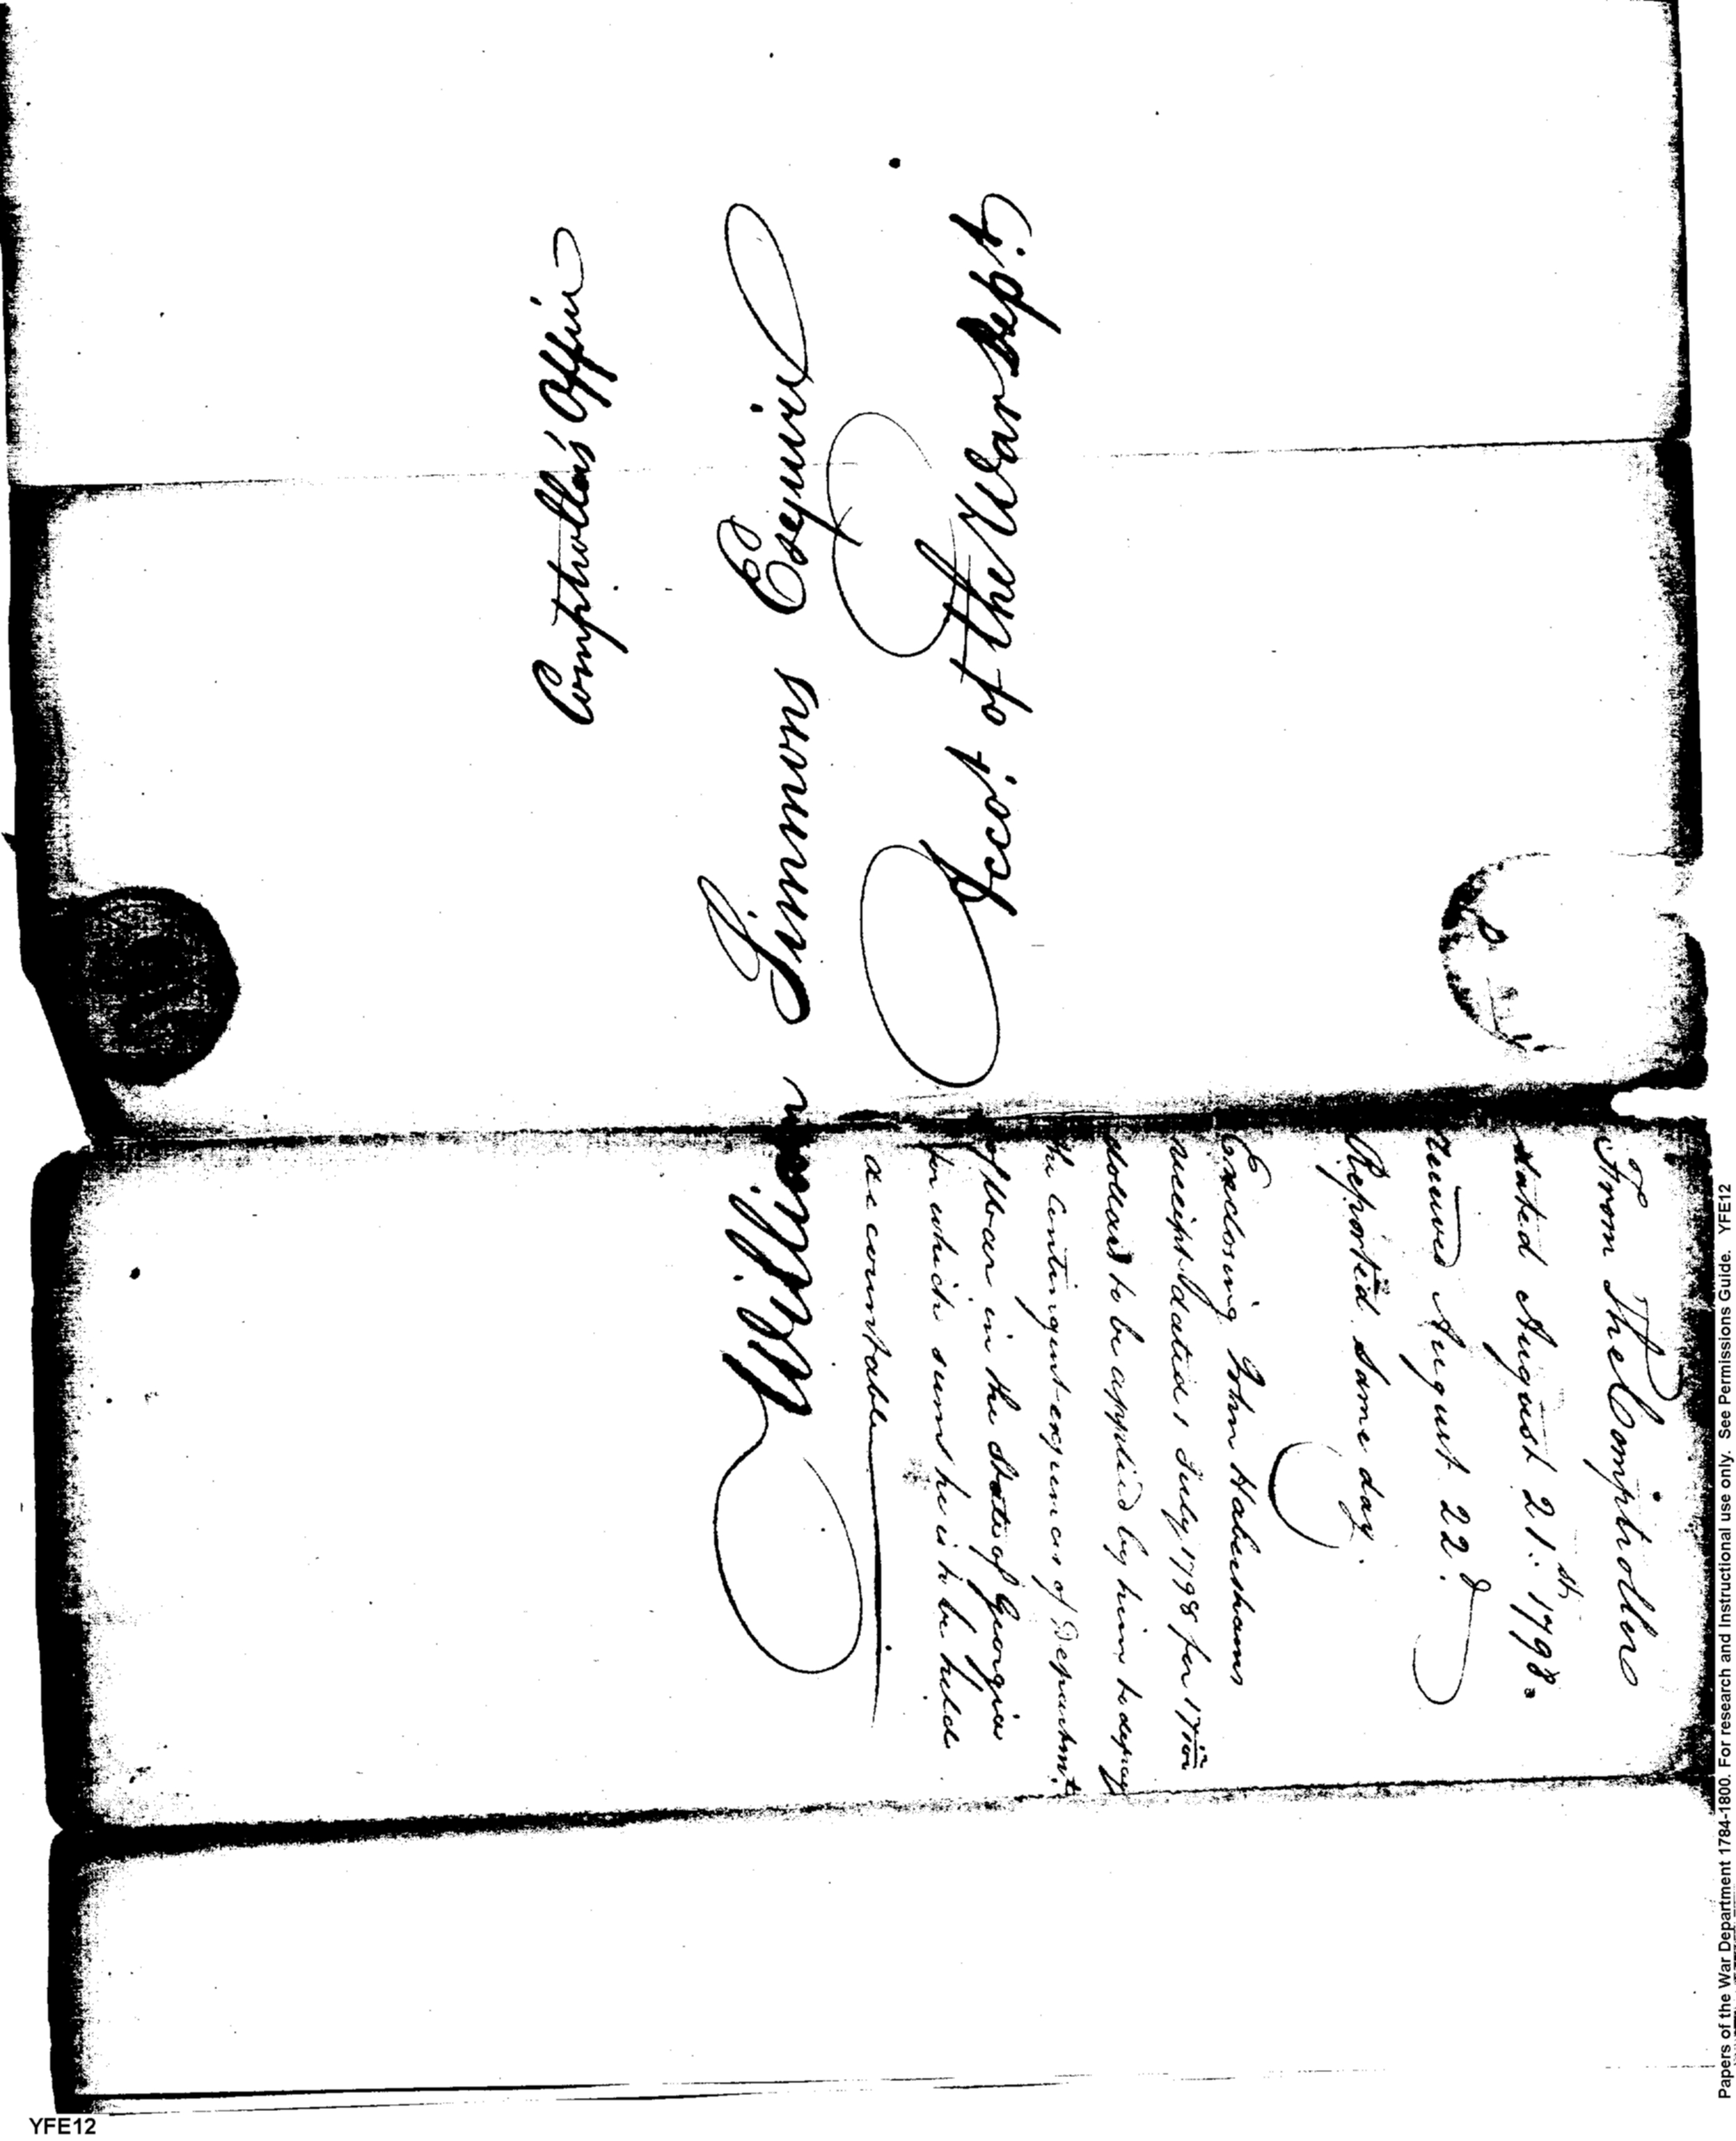 Comptroller's Office
William Simmons Esquire
Acct. of the War Dep.t
From The Comptroller
dated August 21.st 1798.
received August 22.d
Reported same day.
Enclosing John Habershams
receipt dated 1 July 1798 for
dollars to be applied by him to defray
the Contingent expences of Departmt.
of War in the State of Georgia
for which sum he is to be held
accountable
Papers of the War Department 1784-1800. For research and Instructional use only. See Permissions Guide. YFE12
YFE12